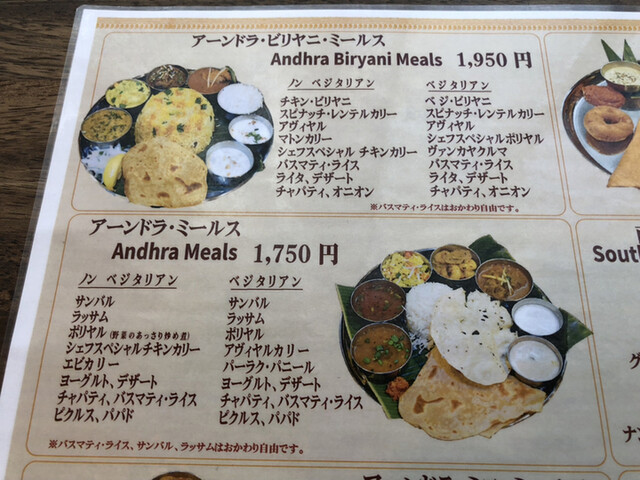 アーンドラ・ビリヤニ・ミールス
Andhra Biryani Meals 1,950 円
ノン ベジタリアン
チキン・ビリヤニ
スピナッチ・レンテルカリー
アヴィヤル
マトンカリー
シェフスペシャル チキンカリー
バスマティ・ライス
ライタ、デザート
チャパティ、オニオン
ベジタリアン
ベジ・ビリヤニ
スピナッチ・レンテルカリー
アヴィヤル
シェフスペシャルポリヤル
ヴァンカヤクルマ
バスマティ・ライス
ライタ、デザート
チャパティ、オニオン
※バスマティ・ライスはおかわり自由です。
アーンドラ・ミールス
Andhra Meals 1,750 円
ノン ベジタリアン
サンバル
ラッサム
ポリヤル (野菜のあっさり炒め煮)
シェフスペシャルチキンカリー
エビカリー
ヨーグルト、デザート
チャパティ、バスマティ・ライス
ピクルス、パパド
ベジタリアン
サンバル
ラッサム
ポリヤル
アヴィヤルカリー
パーラク・パニール
ヨーグルト、デザート
チャパティ、バスマティ・ライス
ピクルス、パパド
※バスマティ・ライス、サンバル、ラッサムはおかわり自由です。
South